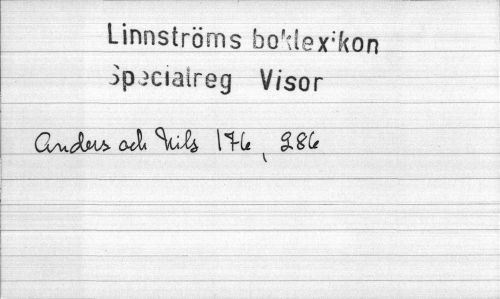 Linnströms boklexikon
Specialreg Visor
Anders och Nils 176, 286